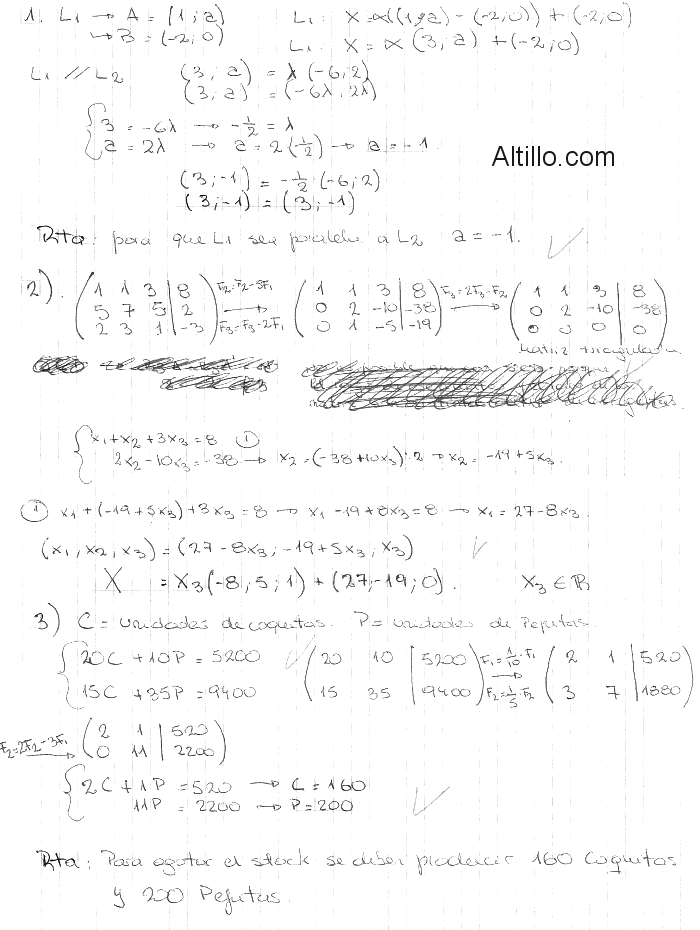 1. L1 → A = (1; a) L1: X = α((1; a) - (-2; 0)) + (-2; 0)
→ B = (-2; 0) L1: X = α (3; a) + (-2; 0)
L1 // L2 (3; a) = λ (-6; 2)
(3; a) = (-6λ; 2λ)
3 = -6λ → -1/2 = λ
a = 2λ → a = 2(-1/2) → a = -1.
Altillo.com
(3; -1) = -1/2 (-6; 2)
(3; -1) = (3; -1)
Rta: para que L1 sea paralela a L2 a = -1.
2). (1 1 3 | 8) F2=F2-5F1 (1 1 3 | 8) F3=2F3-F2 (1 1 3 | 8)
(5 7 5 | 2) → (0 2 -10 | -38) → (0 2 -10 | -38)
(2 3 1 | -3) F3=F3-2F1 (0 1 -5 | -19) (0 0 0 | 0)
matriz triangulada
x1 + x2 + 3x3 = 8 ①
2x2 - 10x3 = -38 → x2 = (-38 + 10x3) : 2 → x2 = -19 + 5x3.
① x1 + (-19 + 5x3) + 3x3 = 8 → x1 - 19 + 8x3 = 8 → x1 = 27 - 8x3
(x1, x2, x3) = (27 - 8x3; -19 + 5x3; x3)
X = x3 (-8; 5; 1) + (27; -19; 0). x3 ∈ R
3) C = unidades de coquitas. P = unidades de Pepitas.
20C + 10P = 5200 (20 10 | 5200) F1=1/10·F1 (2 1 | 520)
15C + 35P = 9400 (15 35 | 9400) → F2=1/5·F2 (3 7 | 1880)
F2=2F2-3F1 → (2 1 | 520)
(0 11 | 2200)
2C + 1P = 520 → C = 160
11P = 2200 → P = 200
Rta: Para agotar el stock se deben producir 160 Coquitas
y 200 Pepitas.